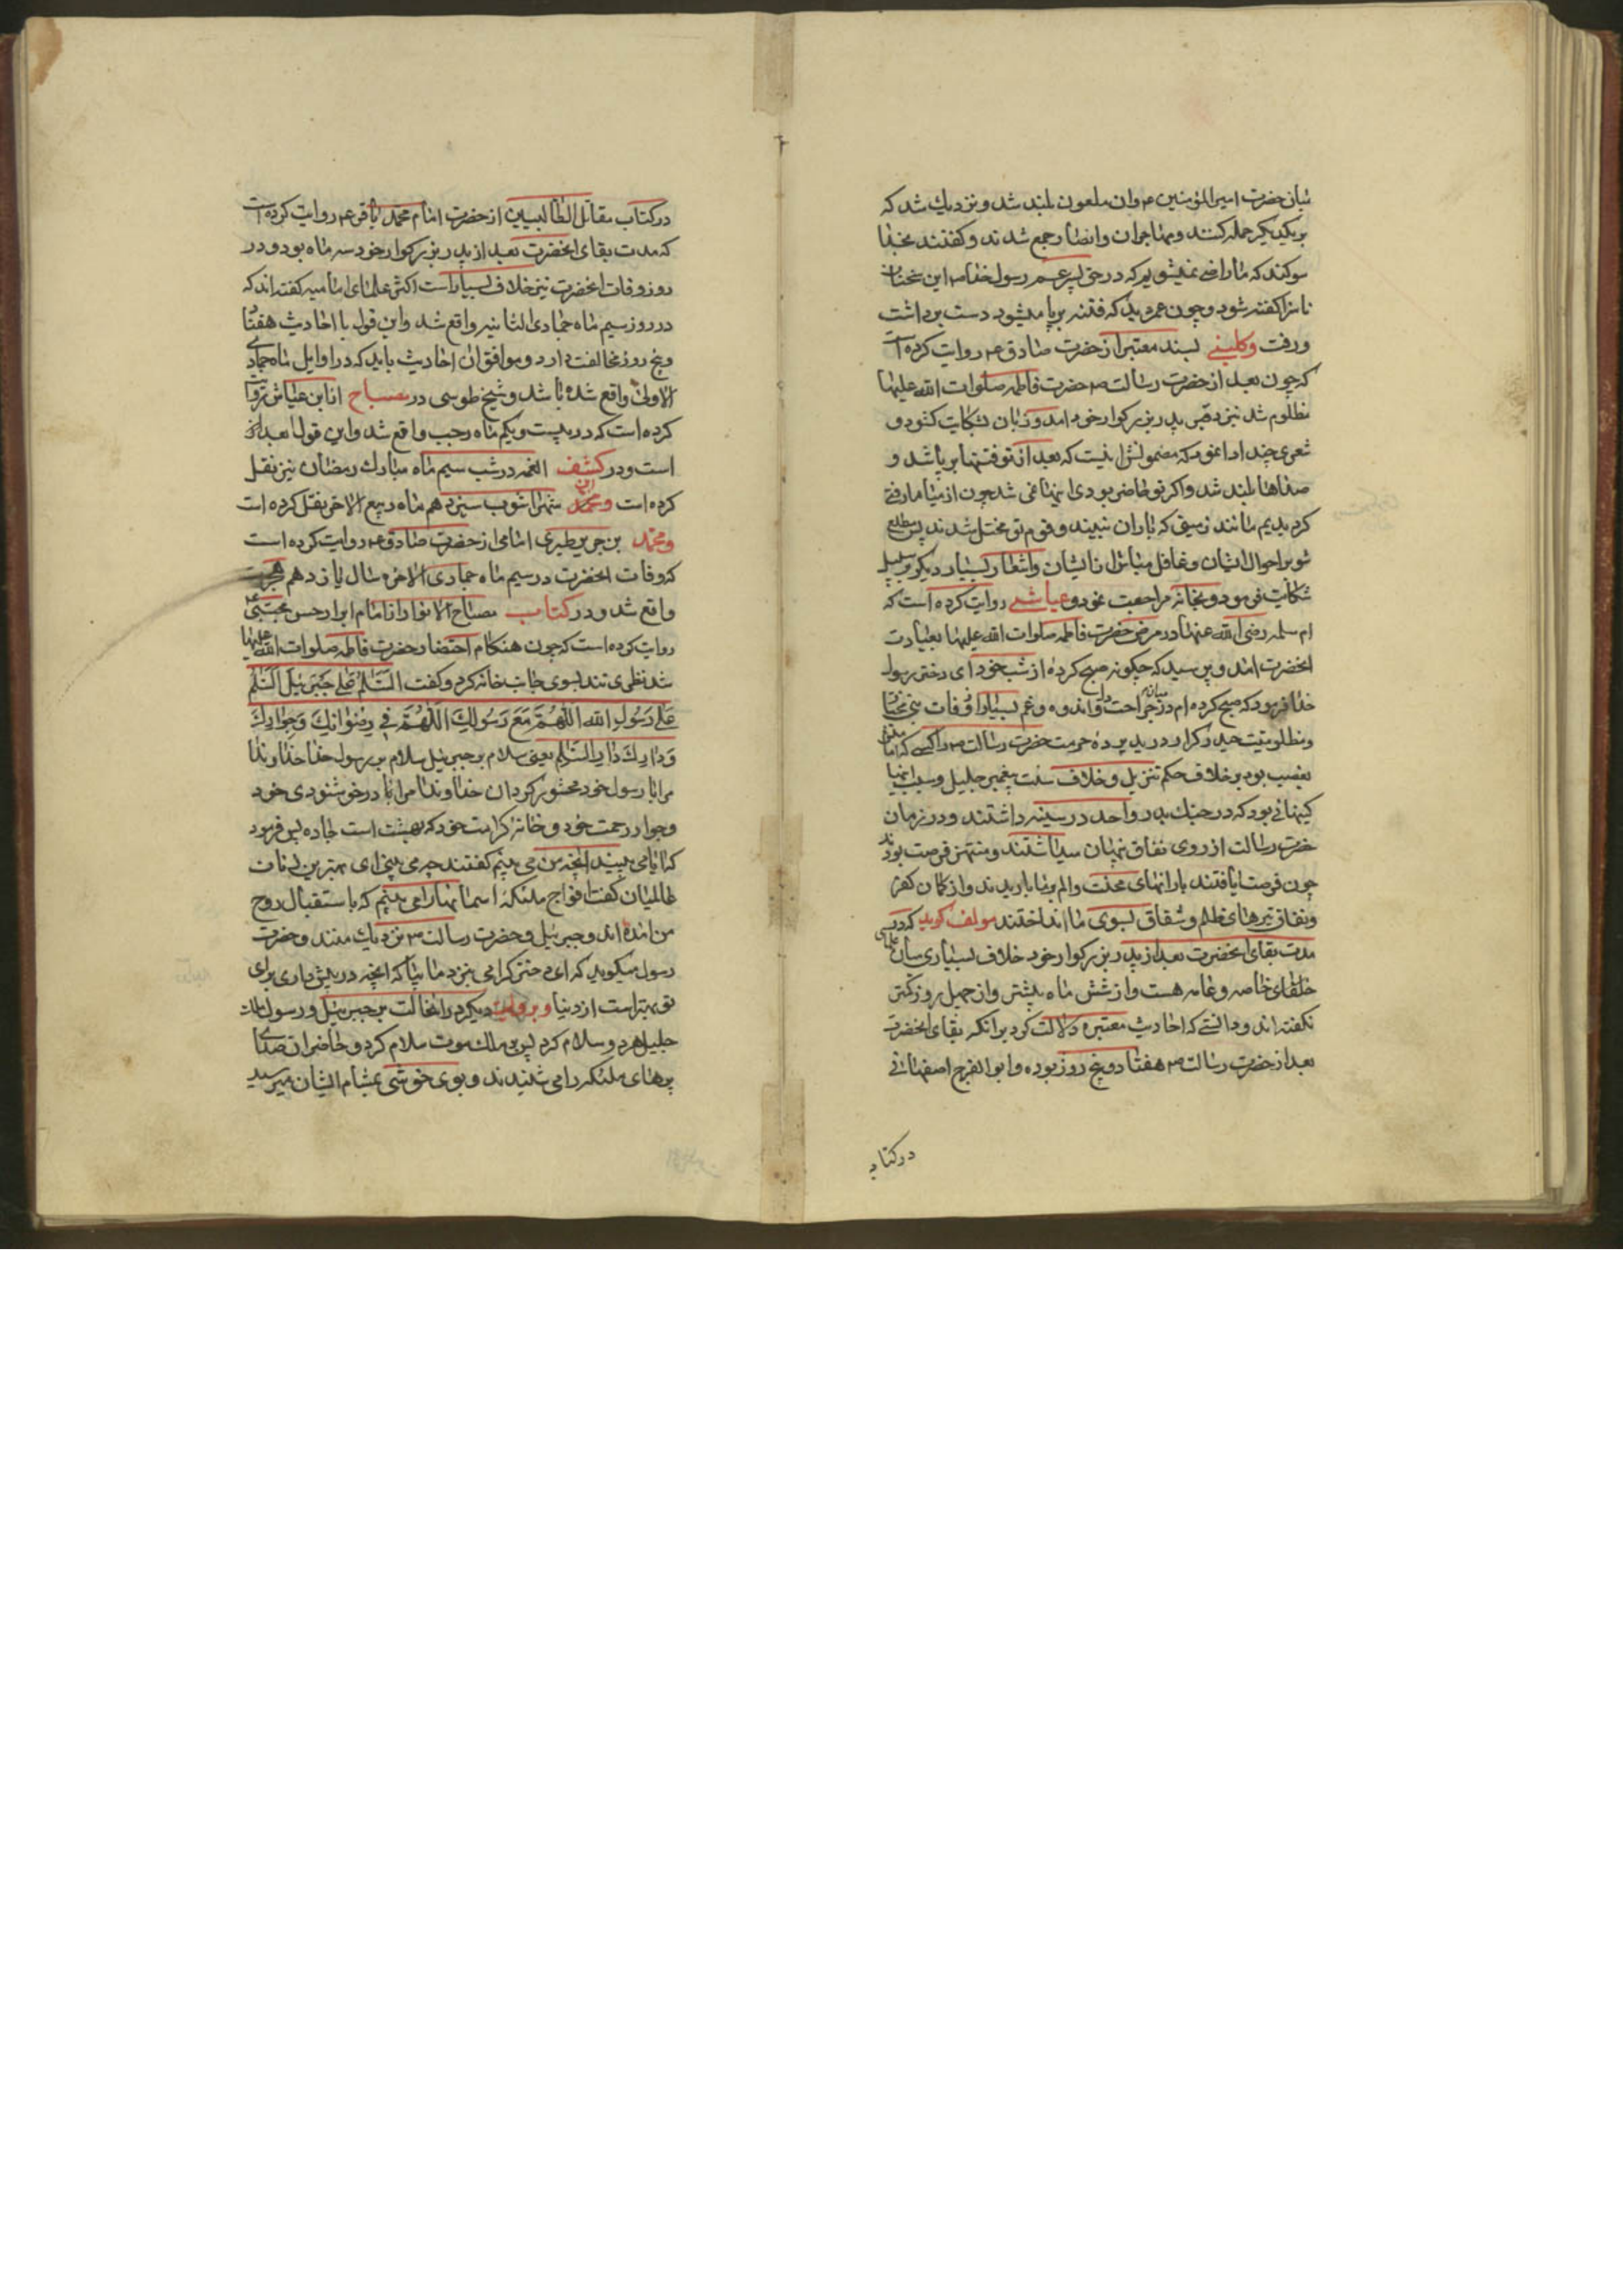 میان حضرت امیرالمؤمنین ع و ان ملعون بلند شد و نزدیك شد که
بر یکدیگر حمله کنند و مهاجران و انصار جمع شدند و گفتند بخدا
سوکند که ما راضی نمیشویم که در حق پسر عم رسول خدا ص این سخنان
ناسزا کفته شود و چون عمر دید که فتنه برپا میشود دست برداشت
و رفت وکلینی بسند معتبر از حضرت صادق ع روایت کرده است
که چون بعد از حضرت رسالت ص حضرت فاطمه صلوات الله علیها
مظلوم شد نزد قبر پدر بزرکوار خود امد و زبان شکایت کشود و
شعری چند ادا نمود که مضمونش اینست که بعد از تو فتنها برپا شد و
صداها بلند شد و اکر تو حاضر بودی اینها نمی شد چون از میان ما رفتی
کردیدیم مانند زمینی که باران نبیند و قوم تو مختل شدند پس مطلع
شو بر احوال ایشان و غافل مباش از ایشان و اشعار بسیار دیکر بر سبیل
شکایت فرمود و بخانه مراجعت نمود و عیاشی روایت کرده است که
ام سلمه رضی الله عنها در مرض حضرت فاطمه صلوات الله علیها بعیادت
انحضرت امد و پرسید که چکونه صبح کرده از شب خود ای دختر رسول
خدا فرمود که صبح کرده ام در میان جراحت دل و اندوه و غم بسیار از وفات
و مظلومیت حیدر کرار درید پرده حرمت حضرت رسالت ص را کسی که امامتش
بغصب بود بر خلاف حکم تنزیل و خلاف سنت پیغمبر جلیل و سبب اینها
کینهائی بود که در جنك بدر و احد در سینه داشتند و در زمان
حضرت رسالت از روی نفاق پنهان میداشتند و منتهز فرصت بودند
چون فرصت یافتند بارانهای محنت و الم بر ما باریدند و از کمان کفر
و نفاق تیرهای ظلم و شقاق بسوی ما انداختند مولف کوید که در
مدت بقای انحضرت بعد از پدر بزرکوار خود خلاف بسیاری میان علمای
خاصه و عامه هست و از شش ماه بیشتر و از چهل روز کمتر
نکفته اند و دانستی که احادیث معتبره دلالت کرد بر انکه بقای انحضرت
بعد از حضرت رسالت ص هفتاد و پنج روز بوده و ابو الفرج اصفهانی
در کتاب
در کتاب مقاتل الطالبیین از حضرت امام محمد باقر ع روایت کرده است
که مدت بقای انحضرت بعد از پدر بزرکوار خود سه ماه بود و در
روز وفات انحضرت نیز خلاف بسیار است اکثر علمای امامیه کفته اند که
در روز سیم ماه جمادی الثانیه واقع شد و این قول با احادیث هفتاد
و پنج روز مخالفت دارد و موافق ان احادیث باید که در اوایل ماه جمادی
الاولی واقع شده باشد و شیخ طوسی در مصباح از ابن عیاش روایت
کرده است که در بیست و یکم ماه رجب واقع شد و این قول ابعد از
است و در کشف الغمه در شب سیم ماه مبارك رمضان نیز نقل
کرده است و محمد ابن شهر اشوب سیزدهم ماه ربیع الاخر نقل کرده است
و محمد بن جریر طبری امامی از حضرت صادق ع روایت کرده است
که وفات انحضرت در سیم ماه جمادی الاخره سال یازدهم هجرت
واقع شد و در کتاب مصباح الانوار از امام ابرار حسن مجتبی ع
روایت کرده است که چون هنکام احتضار حضرت فاطمه صلوات الله علیها
شد نظری تند بسوی جانب خانه کرد و کفت السَّلامُ عَلی جَبرَئیلَ السَّلامُ
عَلی رَسُولِ الله اللّهُمَّ مَعَ رَسُولِكَ اللّهُمَّ فی رِضْوانِكَ وَجِوارِكَ
وَدارِكَ دارِ السَّلام یعنی سلام بر جبرئیل سلام بر رسول خدا خداوندا
مرا با رسول خود محشور کردان خداوندا مرا با در خوشنودی خود
و جوار رحمت خود و خانه کرامت خود که بهشت است جا ده پس فرمود
که ایا می بینید انچه من می بینم کفتند چه می بینی ای بهترین زنان
عالمیان کفت افواج ملئکه اسمانها را می بینم که باستقبال روح
من امده اند و جبرئیل و حضرت رسالت ص نزدیك منند و حضرت
رسول میکوید که ای دختر کرامی بنزد ما بیا که انچه در پیش داری برای
تو بهتر است از دنیا و بروایت دیکر در انحالت بر جبرئیل و رسول ملك
جلیل هر دو سلام کرد پس بر ملك موت سلام کرد و حاضران صدای
پرهای ملئکه را می شنیدند و بوی خوشی بمشام ایشان میرسید